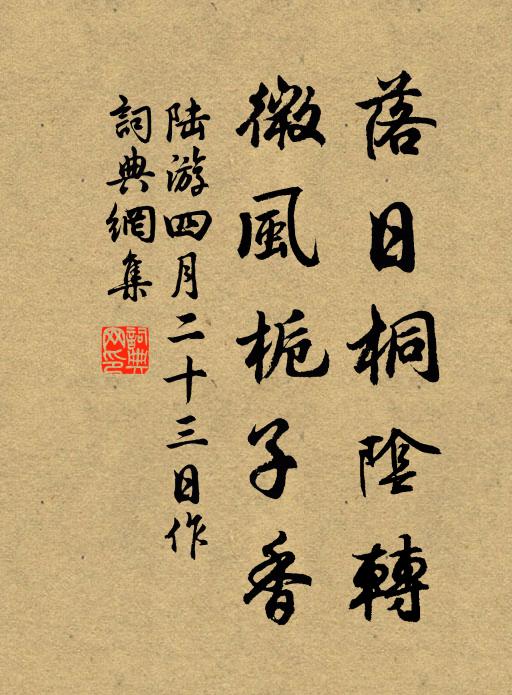 落日桐陰轉
微風梔子香
陆游四月二十三日作
詞典網集
詞典网印